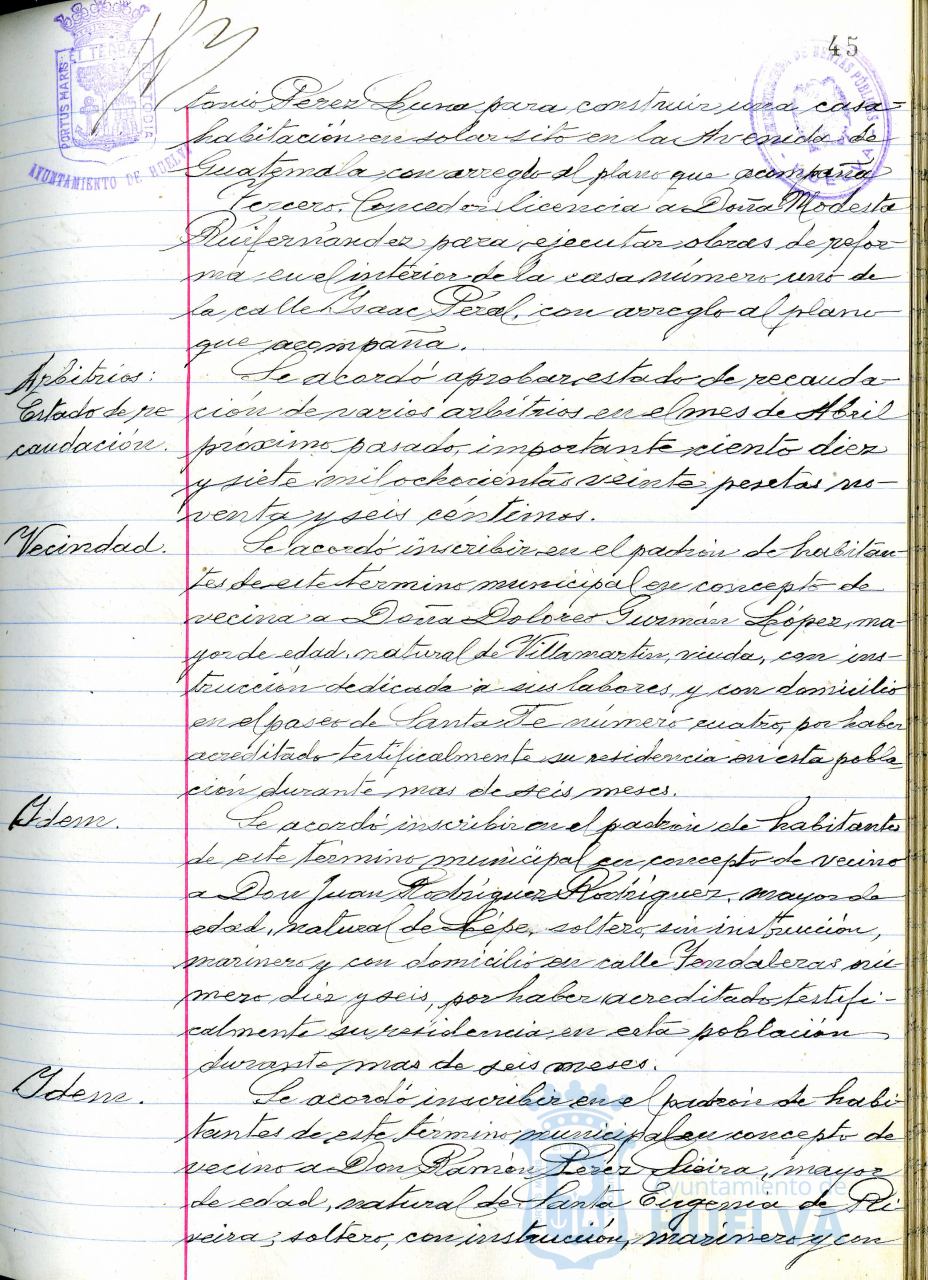 45
PORTUS MARIS ET TERRÆ CUSTODIA
AYUNTAMIENTO DE HUELVA
tonio Pérez Luna para construir una casa-
habitación en solar sito en la Avenida de
Guatemala con arreglo al plano que acompaña
Tercero. Conceder licencia a Doña Modesta
Ruifernández para ejecutar obras de refor-
ma en el interior de la casa número uno de
la calle Isaac Peral, con arreglo al plano
que acompaña.
Arbitrios:
Estado de re
caudación.
Se acordó aprobar estado de recauda-
ción de varios arbitrios en el mes de Abril
próximo pasado, importante ciento diez
y siete mil ochocientas veinte pesetas no-
venta y seis céntimos.
Vecindad.
Se acordó inscribir en el padrón de habitan-
tes de este término municipal en concepto de
vecina a Doña Dolores Guzmán López, ma-
yor de edad, natural de Villamartin, viuda, con ins-
trucción dedicada a sus labores, y con domicilio
en el paseo de Santa Fe número cuatro, por haber
acreditado testificalmente su residencia en esta pobla-
ción durante mas de seis meses.
Idem.
Se acordó inscribir en el padrón de habitantes
de este término municipal en concepto de vecino
a Don Juan Rodríguez Rodríguez, mayor de
edad, natural de Lépe, soltero, sin instrucción,
marinero y con domicilio en calle Fendaleras nú-
mero diez y seis, por haber acreditado testifi-
calmente su residencia en esta población
durante mas de seis meses.
Idem.
Se acordó inscribir en el padrón de habi-
tantes de este término municipal en concepto de
vecino a Don Ramón Pérez Sieira, mayor
de edad, natural de Santa Eugenia de Ri-
veira, soltero, con instrucción, marinero y con
Ayuntamiento de
HUELVA